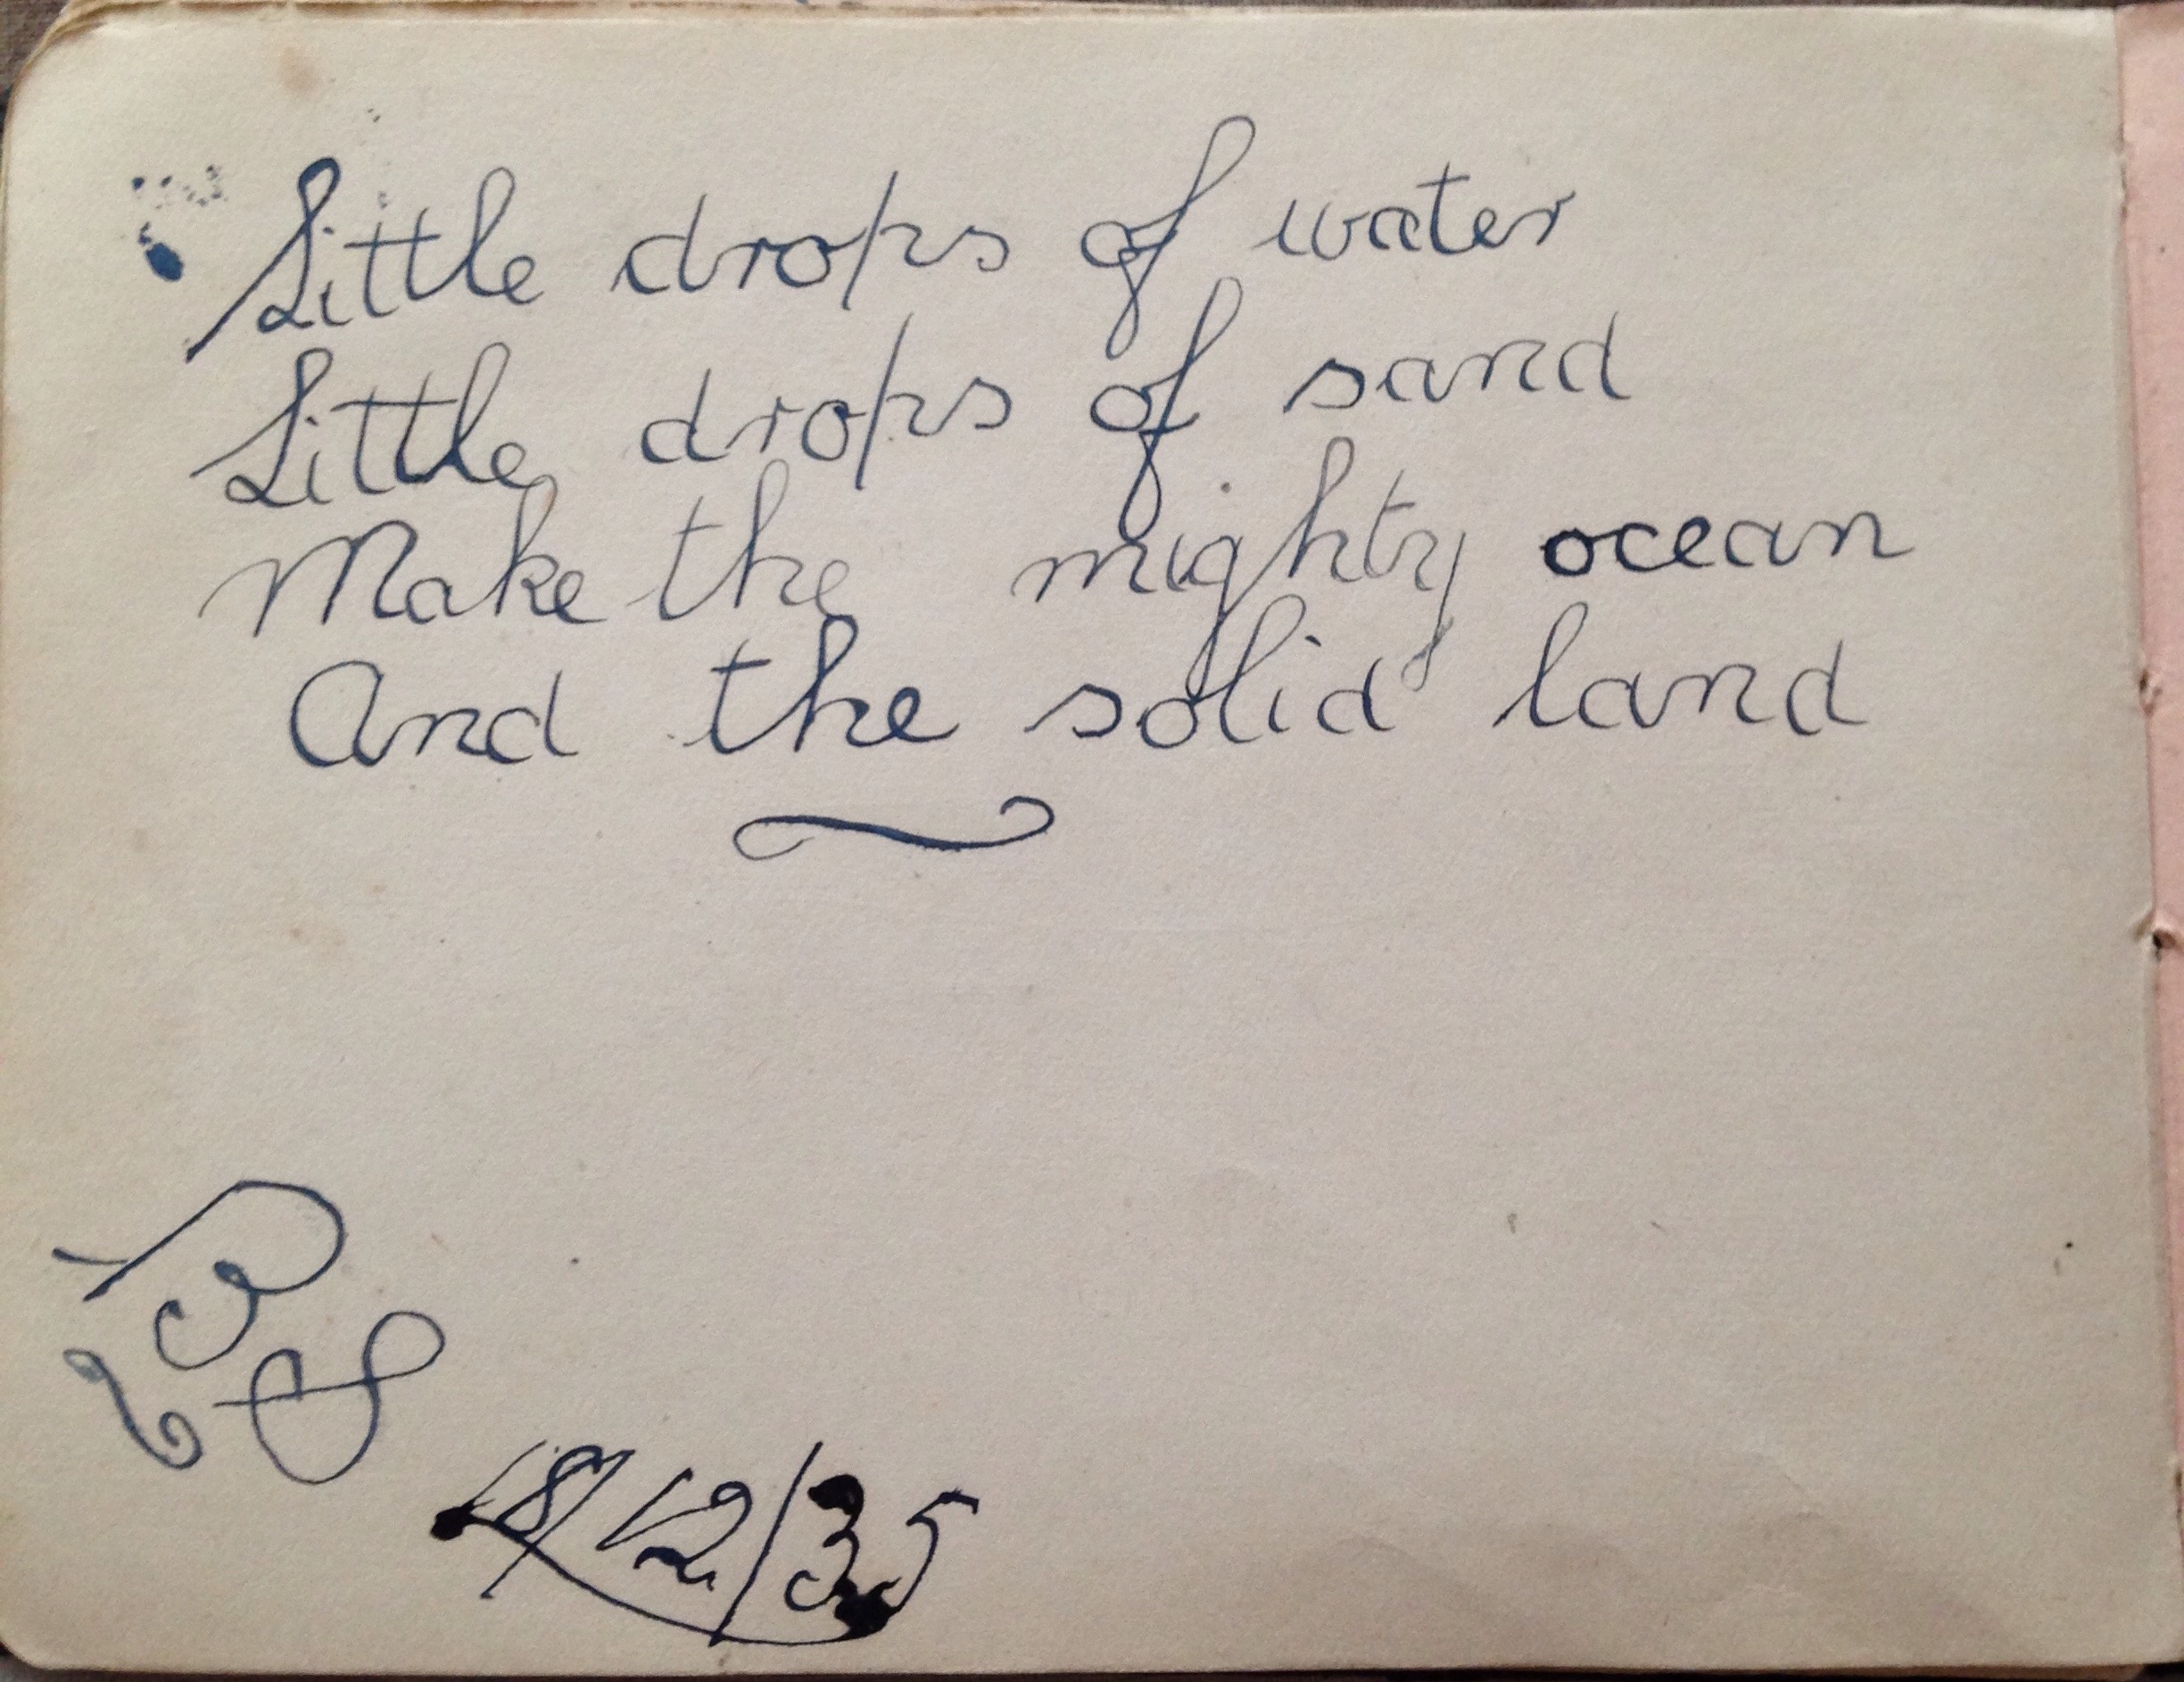 Little drops of water
Little drops of sand
Make the mighty ocean
And the solid land
18/12/35